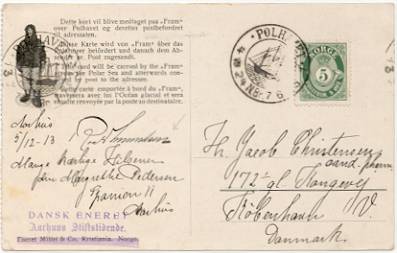 Dette kort vil blive medtaget paa «Fram»
over Polhavet og derefter postbefordret
til adressaten.
Diese Karte wird von «Fram» über das
befördert und danach dem
Post zugesandt.
card will be carried by the «Fram»
the Polar Sea and afterwards
by post to the addressee.
cette carte emportée à bord du «Fram»
traversera avec lui l'Océan glacial et sera
ensuite renvoyée par la poste au destinataire.
POLHAVET
NORGE
5
Aarhus
5/12-13
Mange kærlige Hilsener
Margrethe Pedersen
11
Aarhus
DANSK ENERET
Aarhuus Stiftstidende.
Eneret Mittet & Co. Kristiania, Norge.
Hr. Jacob Christensen
cand. pharm
172 gl. Kongevej
København V.
Danmark.